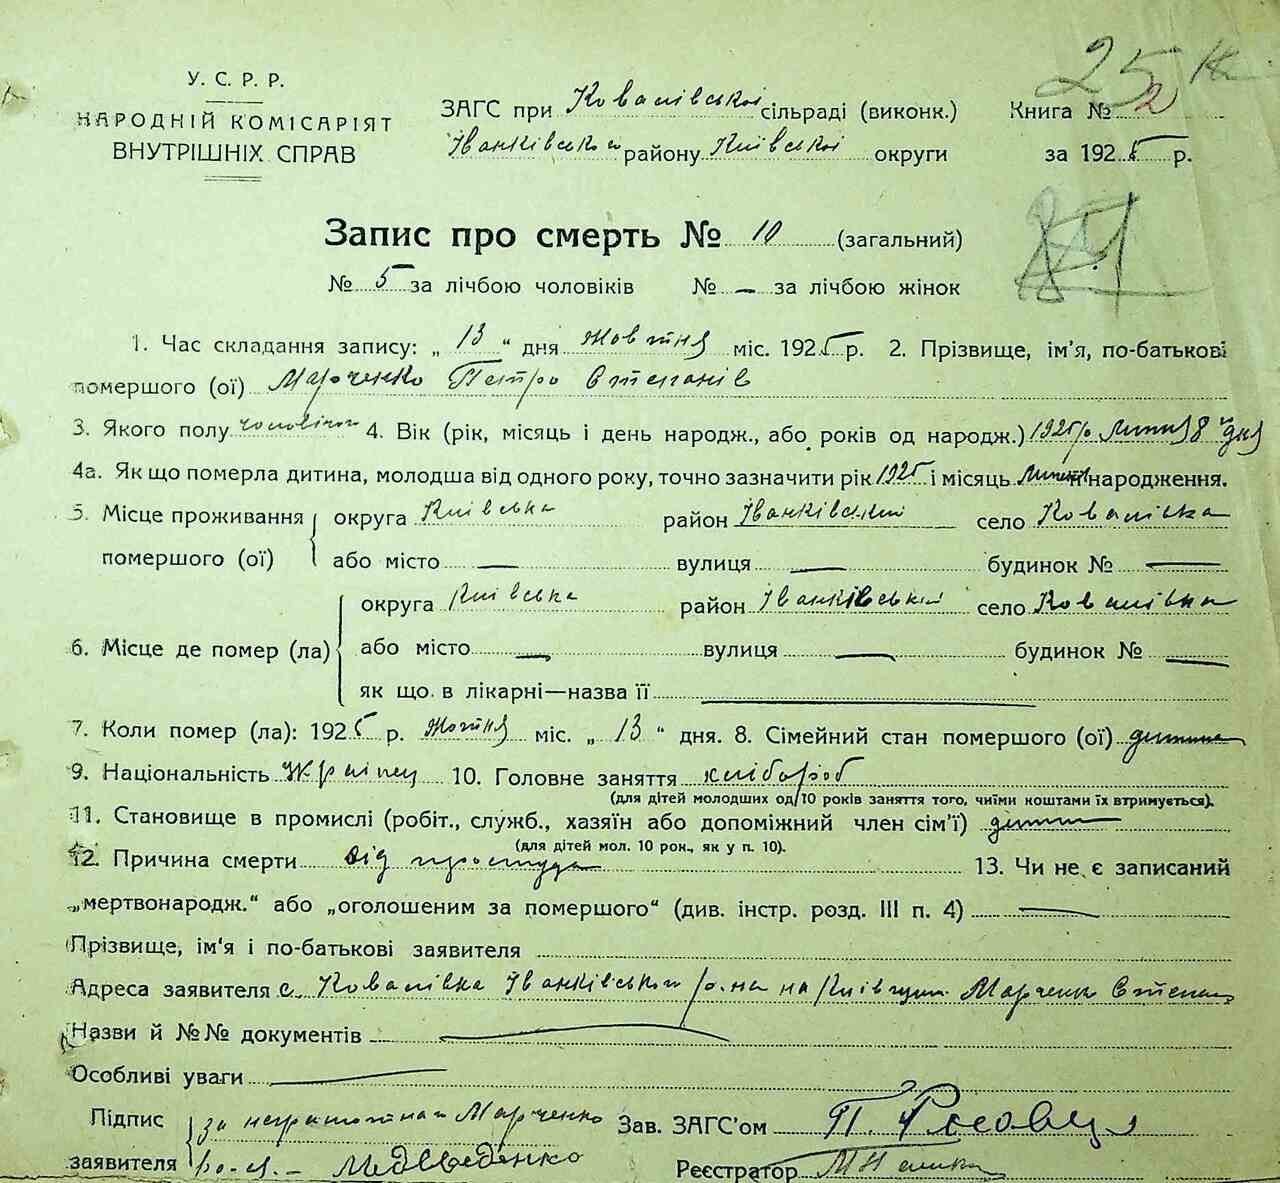 25
У. С. Р. Р.
НАРОДНІЙ КОМІСАРІЯТ
ВНУТРІШНІХ СПРАВ
ЗАГС при Ковалівської сільраді (виконк.)
Іванківського району Київської округи
Книга № 2
за 1925 р.
Запис про смерть № 10 (загальний)
№ 5 за лічбою чоловіків № — за лічбою жінок
1. Час складання запису: „ 13 “ дня Жовтня міс. 1925 р. 2. Прізвище, ім'я, по-батькові
помершого (ої) Марченко Петро Степанів
3. Якого полу 4. Вік (рік, місяць і день народж., або років од народж.) 1925 р Липня 8 дня
4а. Як що померла дитина, молодша від одного року, точно зазначити рік 1925 і місяць народження.
5. Місце проживання помершого (ої) округа Київська район Іванківський село Ковалівка
або місто — вулиця — будинок № —
6. Місце де помер (ла) округа Київська район Іванківський село Ковалівка
або місто — вулиця — будинок № —
як що в лікарні—назва її —
7. Коли помер (ла): 1925 р. Жовтня міс. „ 13 “ дня. 8. Сімейний стан помершого (ої) дитина
9. Національність Украінец 10. Головне заняття хлібороб
(для дітей молодших од 10 років заняття того, чиїми коштами їх втримується).
11. Становище в промислі (робіт., служб., хазяїн або допоміжний член сім'ї)
(для дітей мол. 10 рок., як у п. 10).
12. Причина смерти від простуда 13. Чи не є записаний
„мертвонародж.“ або „оголошеним за помершого“ (див. інстр. розд. III п. 4) —
Прізвище, ім'я і по-батькові заявителя
Адреса заявителя с. Ковалівка Іванківського р-на на Київщині Марченко Степан
Назви й №№ документів —
Особливі уваги —
Підпис заявителя за неграмотная Марченко
Медведенко
Зав. ЗАГС'ом П.
Реєстратор